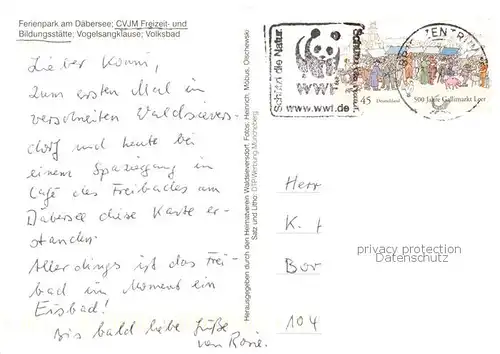 Ferienpark am Däbersee; CVJM Freizeit- und
Bildungsstätte; Vogelsangklause; Volksbad
Lieber Konni,
zum ersten Mal in
verschneiten Waldsievers-
dorf und heute bei
einem Spaziergang im
Café des Freibades am
Däbersee diese Karte er-
standen.
Allerdings ist das Frei-
bad im Moment ein
Eisbad!
Bis bald liebe Grüße
von Rosie.
Herausgegeben durch den Heimatverein Waldsieversdorf. Fotos: Heinrich, Möbius, Olechewski
Satz und Litho: DTP-Werbung-Müncheberg
Schützt die Natur
WWF
www.wwf.de
ZENTRUM
45 Deutschland 500 Jahre Gallimarkt Leer
Herr
K. 
Bor
104
privacy protection
Datenschutz